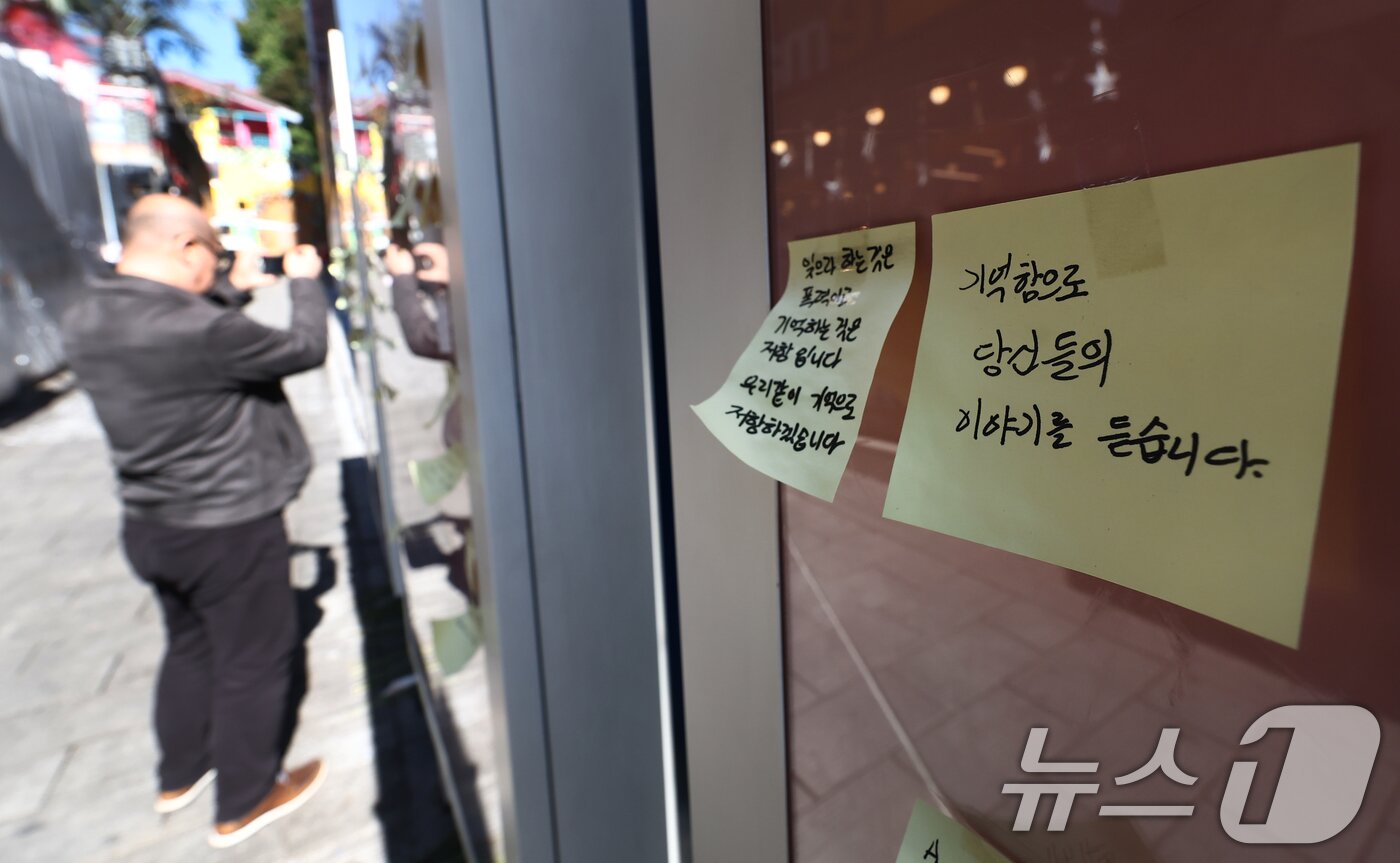 잊으라 하는 것은
폭력이고
기억하는 것은
저항 입니다
우리같이 기억으로
저항하겠읍니다
기억함으로
당신들의
이야기를 듣습니다.
A
뉴스1